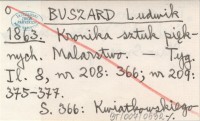 BUSZARD Ludwik
1863. Kronika sztuk pięk-
nych. Malarstwo. — Tyg.
Il. 8, nr 208: 366; nr 209:
375-377.
S. 366: Kwiatkowskiego